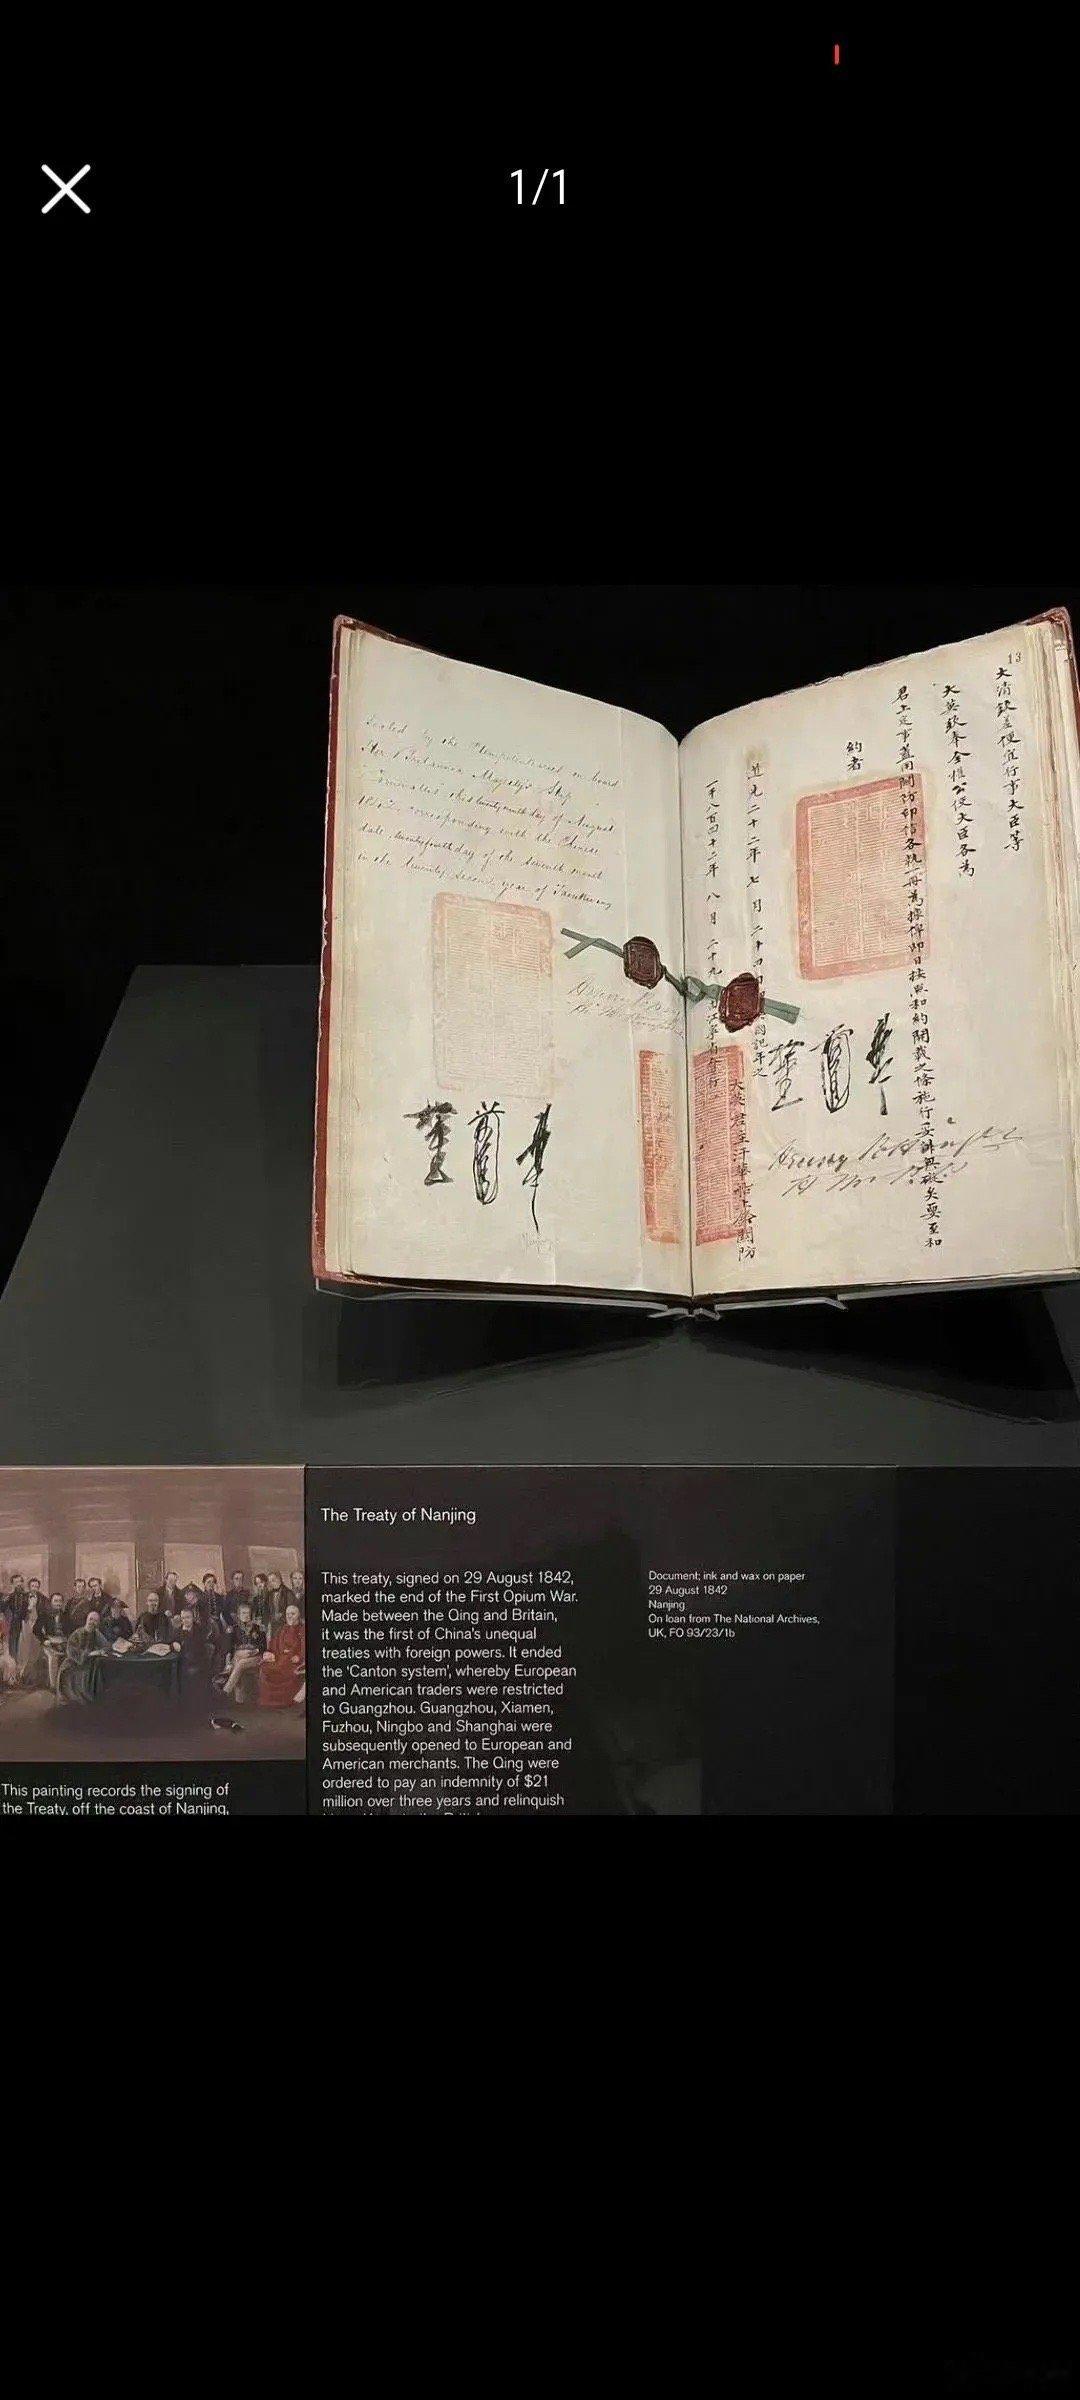 1/1
Sealed by the Plenipotentiaries on board
Her Britannic Majesty's Ship
Cornwallis, this twenty ninth day of August
1842, corresponding with the Chinese
date, twenty fourth day of the seventh month
in the twenty second year of Taoukwang
13
大清欽差便宜行事大臣等
大英欽奉全權公使大臣各為
君上定事蓋用關防印信各執一冊為據俾即日按照和約開載之條施行妥辦無礙矣要至和
約者
道光二十二年七月二十四日
一千八百四十二年八月二十九
大英君主汗華船上鈐關防
Henry Pottinger
The Treaty of Nanjing
This treaty, signed on 29 August 1842,
marked the end of the First Opium War.
Made between the Qing and Britain,
it was the first of China's unequal
treaties with foreign powers. It ended
the 'Canton system', whereby European
and American traders were restricted
to Guangzhou. Guangzhou, Xiamen,
Fuzhou, Ningbo and Shanghai were
subsequently opened to European and
American merchants. The Qing were
ordered to pay an indemnity of $21
million over three years and relinquish
Document; ink and wax on paper
29 August 1842
Nanjing
On loan from The National Archives,
UK, FO 93/23/1b
This painting records the signing of
the Treaty, off the coast of Nanjing,